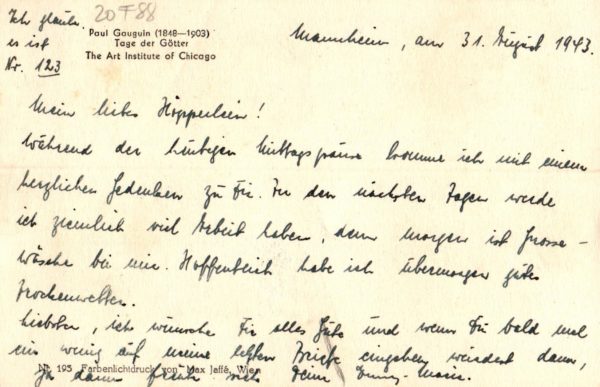 Ich glaube
es ist
Nr. 123
20 F 88
Paul Gauguin (1848—1903)
Tage der Götter
The Art Institute of Chicago
Mannheim, am 31. August 1943.
Mein liebes !
Während der heutigen Mittagspause komme ich mit einem
herzlichen Gedenken zu Dir. In den nächsten Tagen werde
ich ziemlich viel Arbeit haben, denn morgen ist Grosse-
wäsche bei mir. Hoffentlich habe ich übermorgen gutes
Trockenwetter.
Liebster, ich wünsche Dir alles Gute und wenn Du bald mal
ein wenig auf meine letzten Briefe eingehen würdest, dann,
Nr. 193 Farbenlichtdruck von Max Jaffé, Wien
ja dann freute sich Deine Marie.